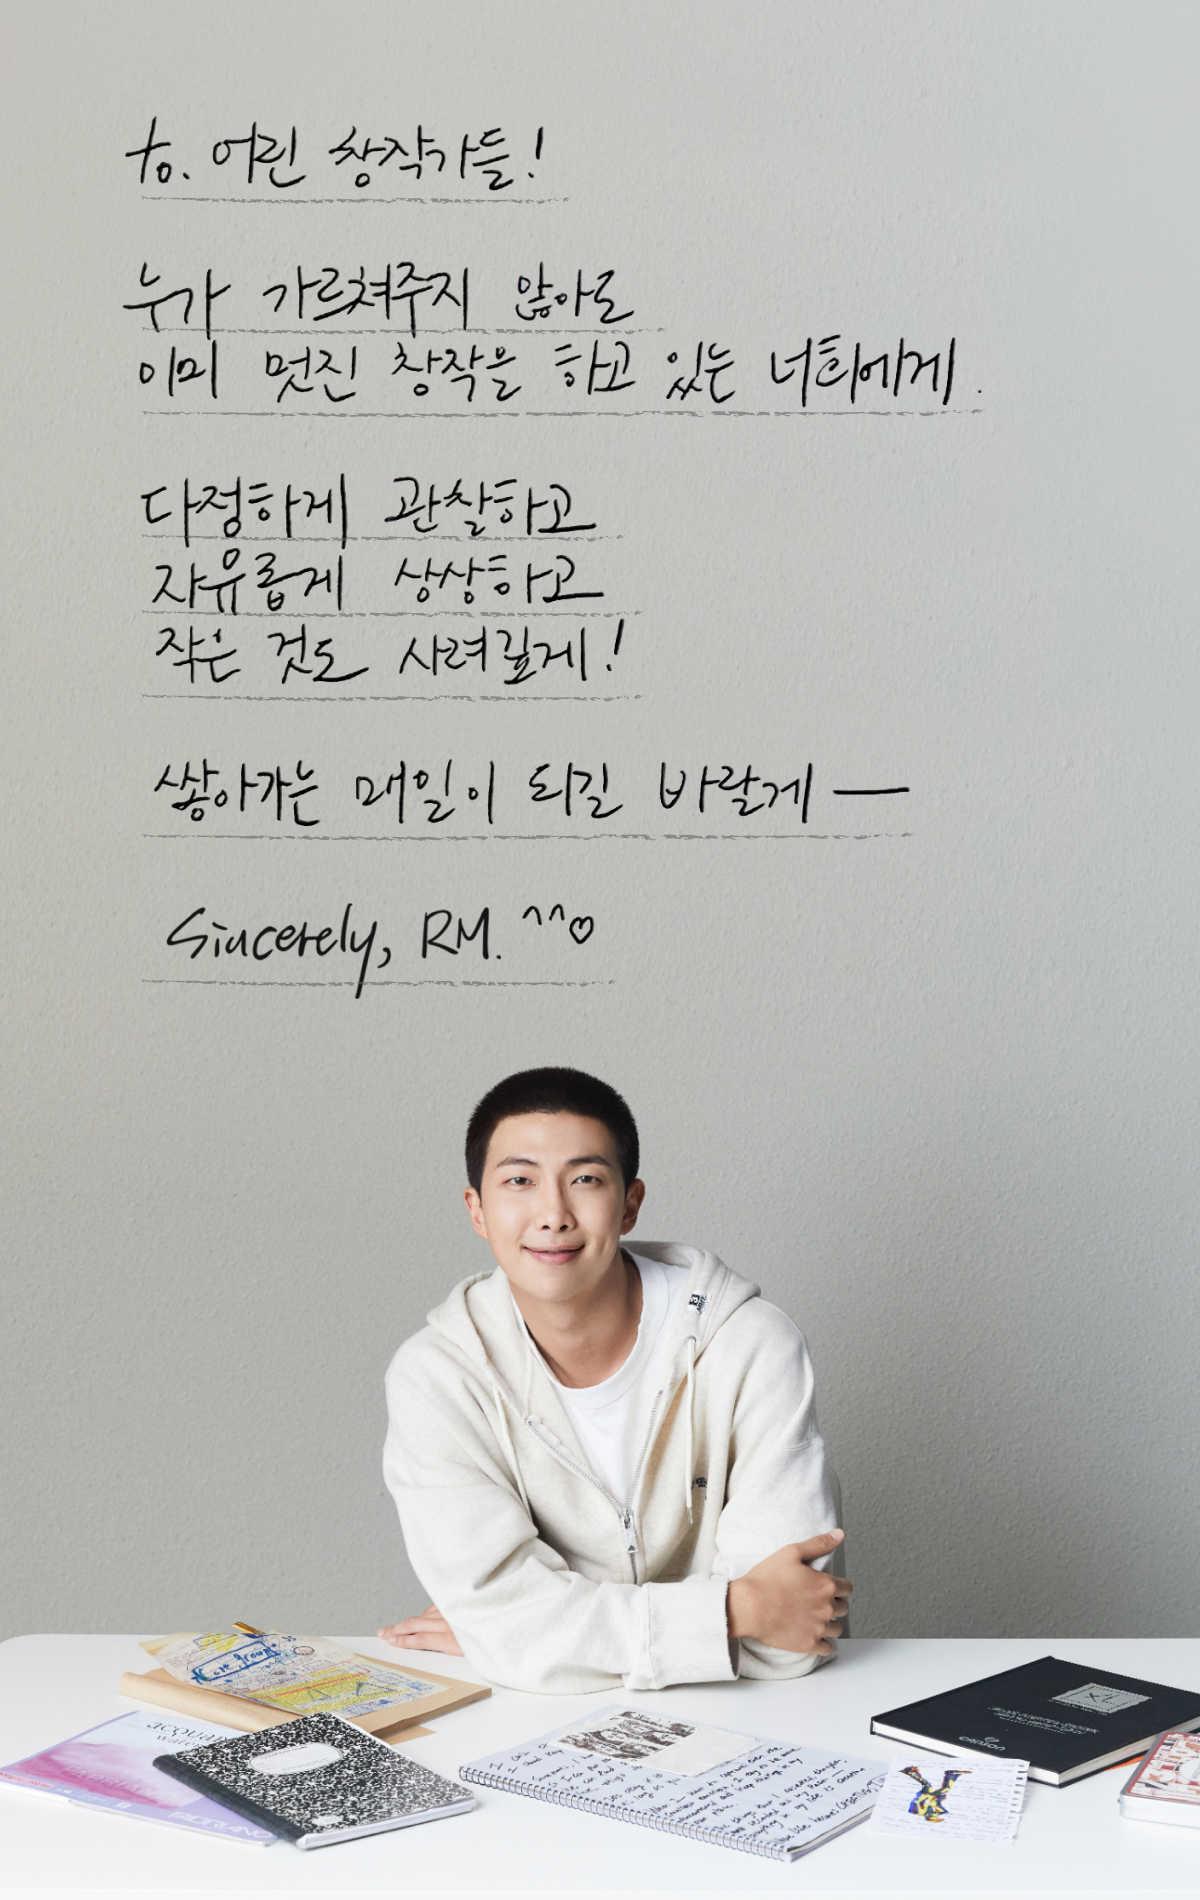 to. 어린 창작가들!
누가 가르쳐주지 않아도
이미 멋진 창작을 하고 있는 너희에게.
다정하게 관찰하고
자유롭게 상상하고
작은 것도 사려깊게!
쌓아가는 매일이 되길 바랄게 —
Sincerely, RM. ^^♡
Core group
XL
CANSON
FABRIANO